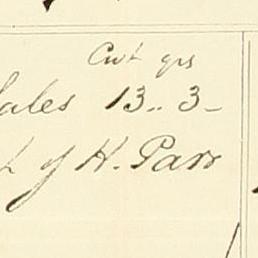 Cwt qrs
ales 13.. 3 -
of H. Parr